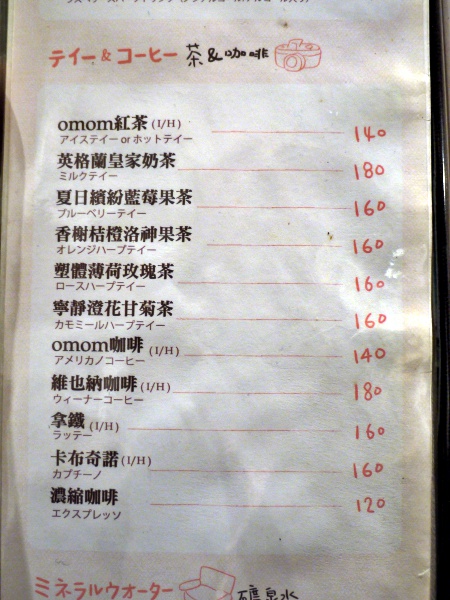 ティー & コーヒー 茶&咖啡
omom紅茶 (I/H) 140
アイスティー or ホットティー
英格蘭皇家奶茶 180
ミルクティー
夏日繽紛藍莓果茶 160
ブルーベリーティー
香榭桔橙洛神果茶 160
オレンジハーブティー
塑體薄荷玫瑰茶 160
ロースハーブティー
寧靜澄花甘菊茶 160
カモミールハーブティー
omom咖啡 (I/H) 140
アメリカノコーヒー
維也納咖啡 (I/H) 180
ウィーナーコーヒー
拿鐵 (I/H) 160
ラッテー
卡布奇諾 (I/H) 160
カプチーノ
濃縮咖啡 120
エクスプレッソ
ミネラルウオーター 礦泉水